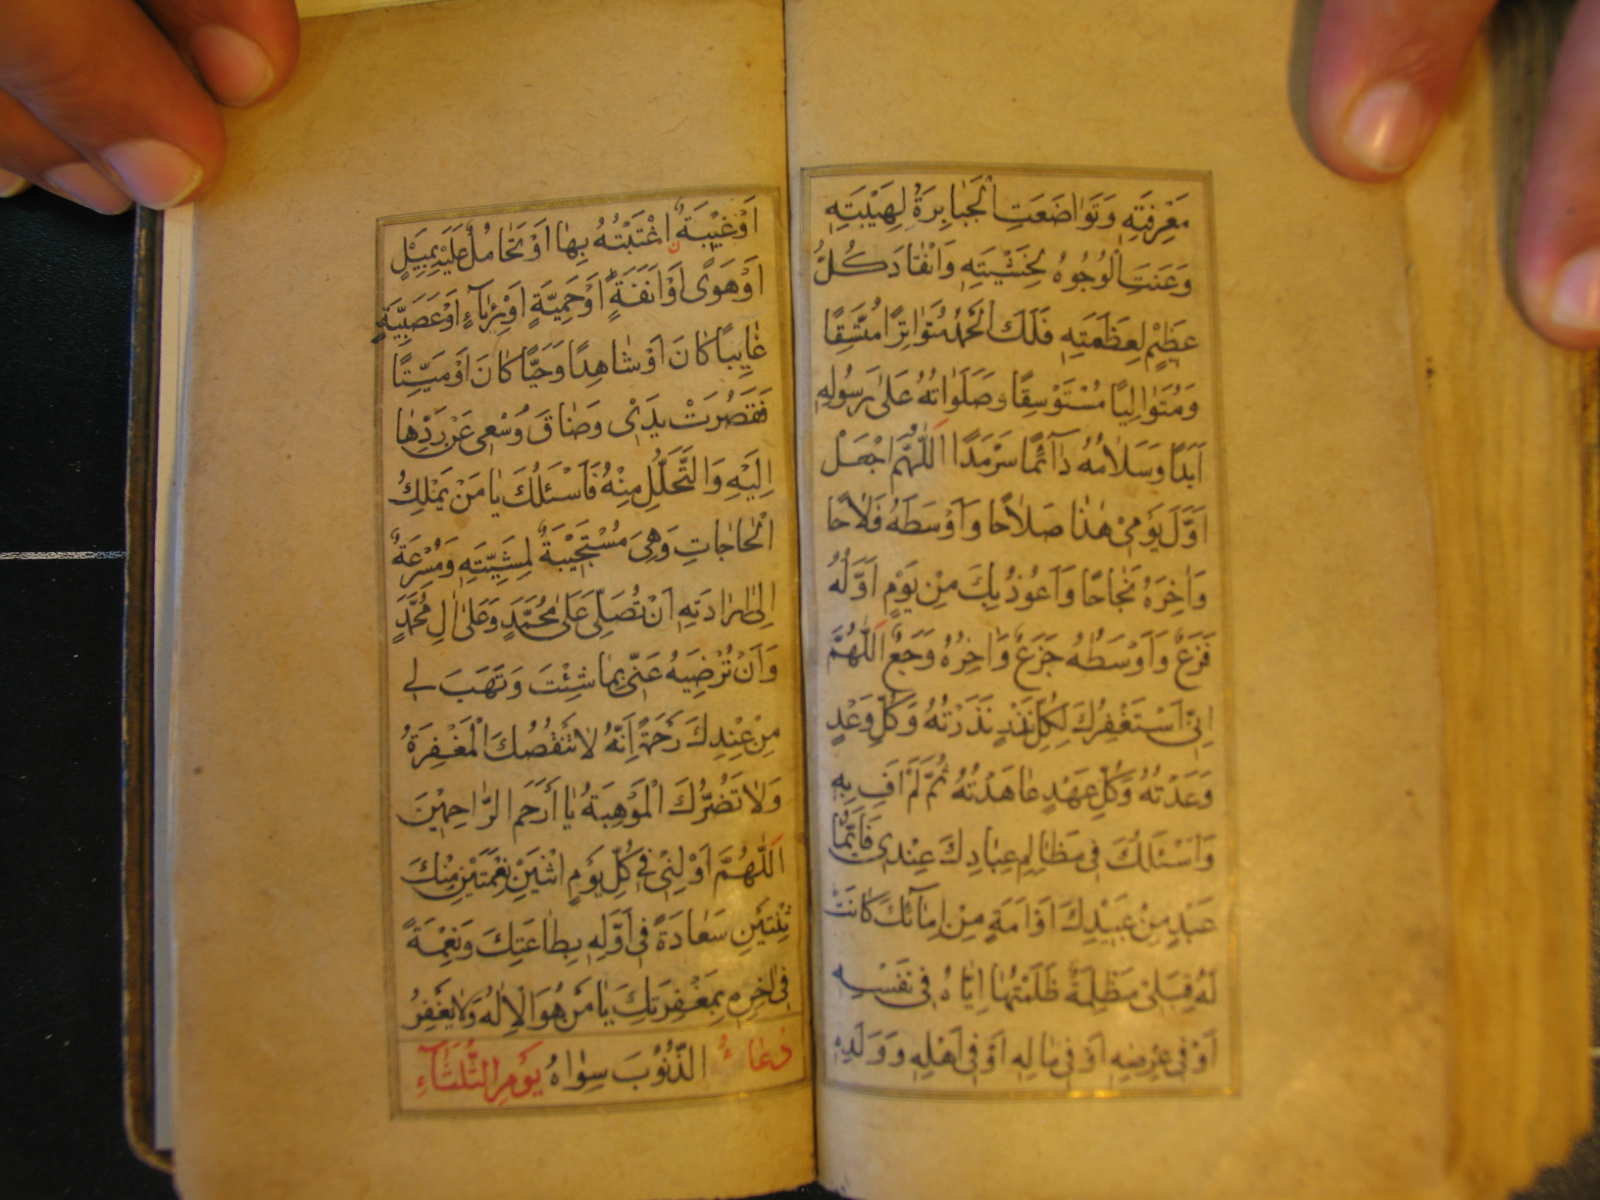 مَعْرِفَتِهِ وَتَوَاضَعَتِ الْجَبَابِرَةُ لِهَيْبَتِهِ
وَعَنَتِ الْوُجُوهُ لِخَشْيَتِهِ وَانْقَادَ كُلُّ
عَظِيْمٍ لِعَظَمَتِهِ فَلَكَ الْحَمْدُ مُتَوَاتِرًا مُتَّسِقًا
وَمُتَوَالِيًا مُسْتَوْسِقًا وَصَلَوَاتُهُ عَلَى رَسُولِهِ
اَبَدًا وَسَلَامُهُ دَآئِمًا سَرْمَدًا اَللّٰهُمَّ اجْعَلْ
اَوَّلَ يَوْمِيْ هٰذَا صَلَاحًا وَاَوْسَطَهُ فَلَاحًا
وَاٰخِرَهُ نَجَاحًا وَاَعُوْذُ بِكَ مِنْ يَوْمٍ اَوَّلُهُ
فَزَعٌ وَاَوْسَطُهُ جَزَعٌ وَاٰخِرُهُ وَجَعٌ اَللّٰهُمَّ
اِنِّيْ اَسْتَغْفِرُكَ لِكُلِّ نَذْرٍ نَذَرْتُهُ وَكُلِّ وَعْدٍ
وَعَدْتُهُ وَكُلِّ عَهْدٍ عَاهَدْتُهُ ثُمَّ لَمْ اَفِ بِهِ
وَاَسْئَلُكَ فِي مَظَالِمِ عِبَادِكَ عِنْدِيْ فَاَيُّمَا
عَبْدٍ مِنْ عَبِيْدِكَ اَوْ اَمَةٍ مِنْ اِمَآئِكَ كَانَتْ
لَهُ قِبَلِيْ مَظْلِمَةٌ ظَلَمْتُهَا اِيَّاهُ فِي نَفْسِهِ
اَوْ فِي عِرْضِهِ اَوْ فِي مَالِهِ اَوْ فِي اَهْلِهِ وَوَلَدِهِ
اَوْ غِيْبَةٌ اغْتَبْتُهُ بِهَا اَوْ تَحَامُلٌ عَلَيْهِ بِمَيْلٍ
اَوْ هَوًى اَوْ اَنَفَةٍ اَوْ حَمِيَّةٍ اَوْ رِيَآءٍ اَوْ عَصَبِيَّةٍ
غَايِبًا كَانَ اَوْ شَاهِدًا وَحَيًّا كَانَ اَوْ مَيِّتًا
فَقَصُرَتْ يَدَىْ وَضَاقَ وُسْعِي عَنْ رَدِّهَا
اِلَيْهِ وَالتَّحَلُّلِ مِنْهُ فَاَسْئَلُكَ يَا مَنْ يَمْلِكُ
الْحَاجَاتِ وَهِيَ مُسْتَجِيْبَةٌ لِمَشِيَّتِهِ وَمُسْرِعَةٌ
اِلٰى اِرَادَتِهِ اَنْ تُصَلِّيَ عَلٰى مُحَمَّدٍ وَعَلٰى اٰلِ مُحَمَّدٍ
وَاَنْ تُرْضِيَهُ عَنِّيْ بِمَا شِئْتَ وَتَهَبَ لِي
مِنْ عِنْدِكَ رَحْمَةً اِنَّهُ لَا تَنْقُصُكَ الْمَغْفِرَةُ
وَلَا تَضُرُّكَ الْمَوْهِبَةُ يَا اَرْحَمَ الرَّاحِمِيْنَ
اَللّٰهُمَّ اَوْلِنِيْ فِي كُلِّ يَوْمِ اثْنَيْنِ نِعْمَتَيْنِ مِنْكَ
ثِنْتَيْنِ سَعَادَةً فِي اَوَّلِهِ بِطَاعَتِكَ وَنِعْمَةً
فِي اٰخِرِهِ بِمَغْفِرَتِكَ يَا مَنْ هُوَ الْاِلٰهُ وَلَا يَغْفِرُ
دُعَاءُ الذُّنُوْبَ سِوَاهُ يَوْمِ الثُّلَثَآءِ